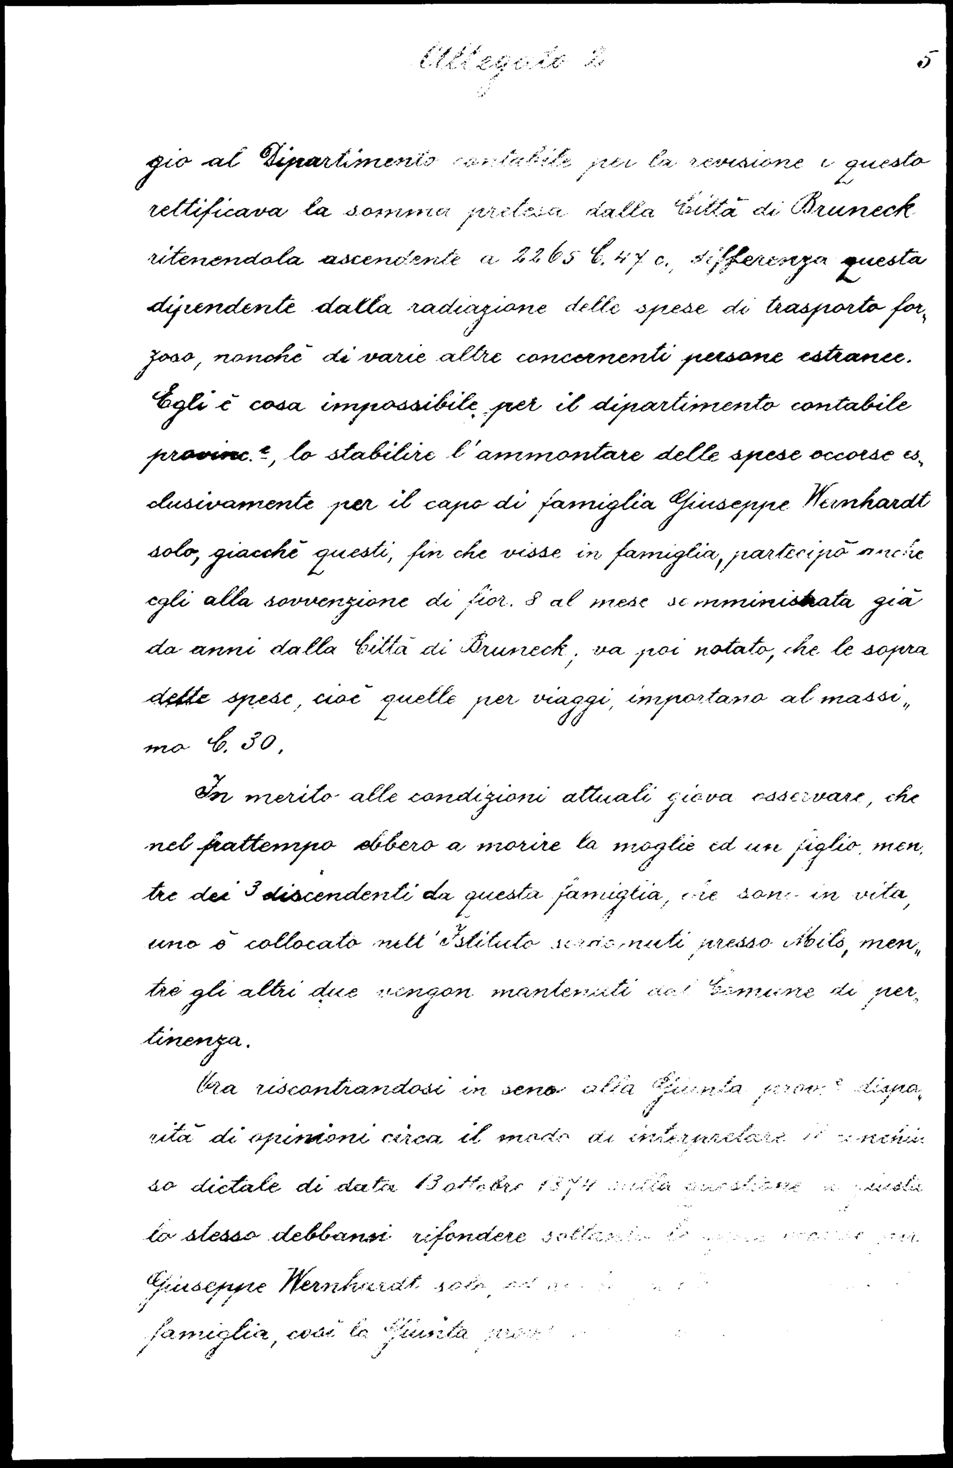 Allegato 2
5
gio al Dipartimento contabile per la revisione e questo
rettificava la somma pretesa dalla Città di Bruneck
ritenendola ascendente a 2265 f. 47 c., differenza questa
dipendente dalla radiazione delle spese di trasporto for„
zoso, nonchè di varie altre concernenti persone estranee.
Egli è cosa impossibile per il dipartimento contabile
provinc.e, lo stabilire l'ammontare delle spese occorse es„
clusivamente per il capo di famiglia Giuseppe Wernhardt
solo, giacchè questi, fin che visse in famiglia, partecipò anche
egli alla sovvenzione di fior. 8 al mese somministrata già
da anni dalla Città di Bruneck; va poi notato, che le sopra
dette spese, cioè quelle per viaggi, importano al massi„
mo f. 30.
In merito alle condizioni attuali giova osservare, che
nel frattempo ebbero a morire la moglie ed un figlio, men„
tre dei 3 discendenti da questa famiglia, che sono in vita,
uno è collocato nell'Istituto sordomuti presso Mils, men„
tre gli altri due vengon mantenuti dal Comune di per„
tinenza.
Ora riscontrandosi in seno alla Giunta prov.e dispa„
rità di opinioni circa il modo di interpretare il conchiu
so dietale di data 13 ottobre 1874 sulla questione se giusta
lo stesso debbansi rifondere soltanto le spese occorse per
Giuseppe Wernhardt solo, od
famiglia, così la Giunta prov